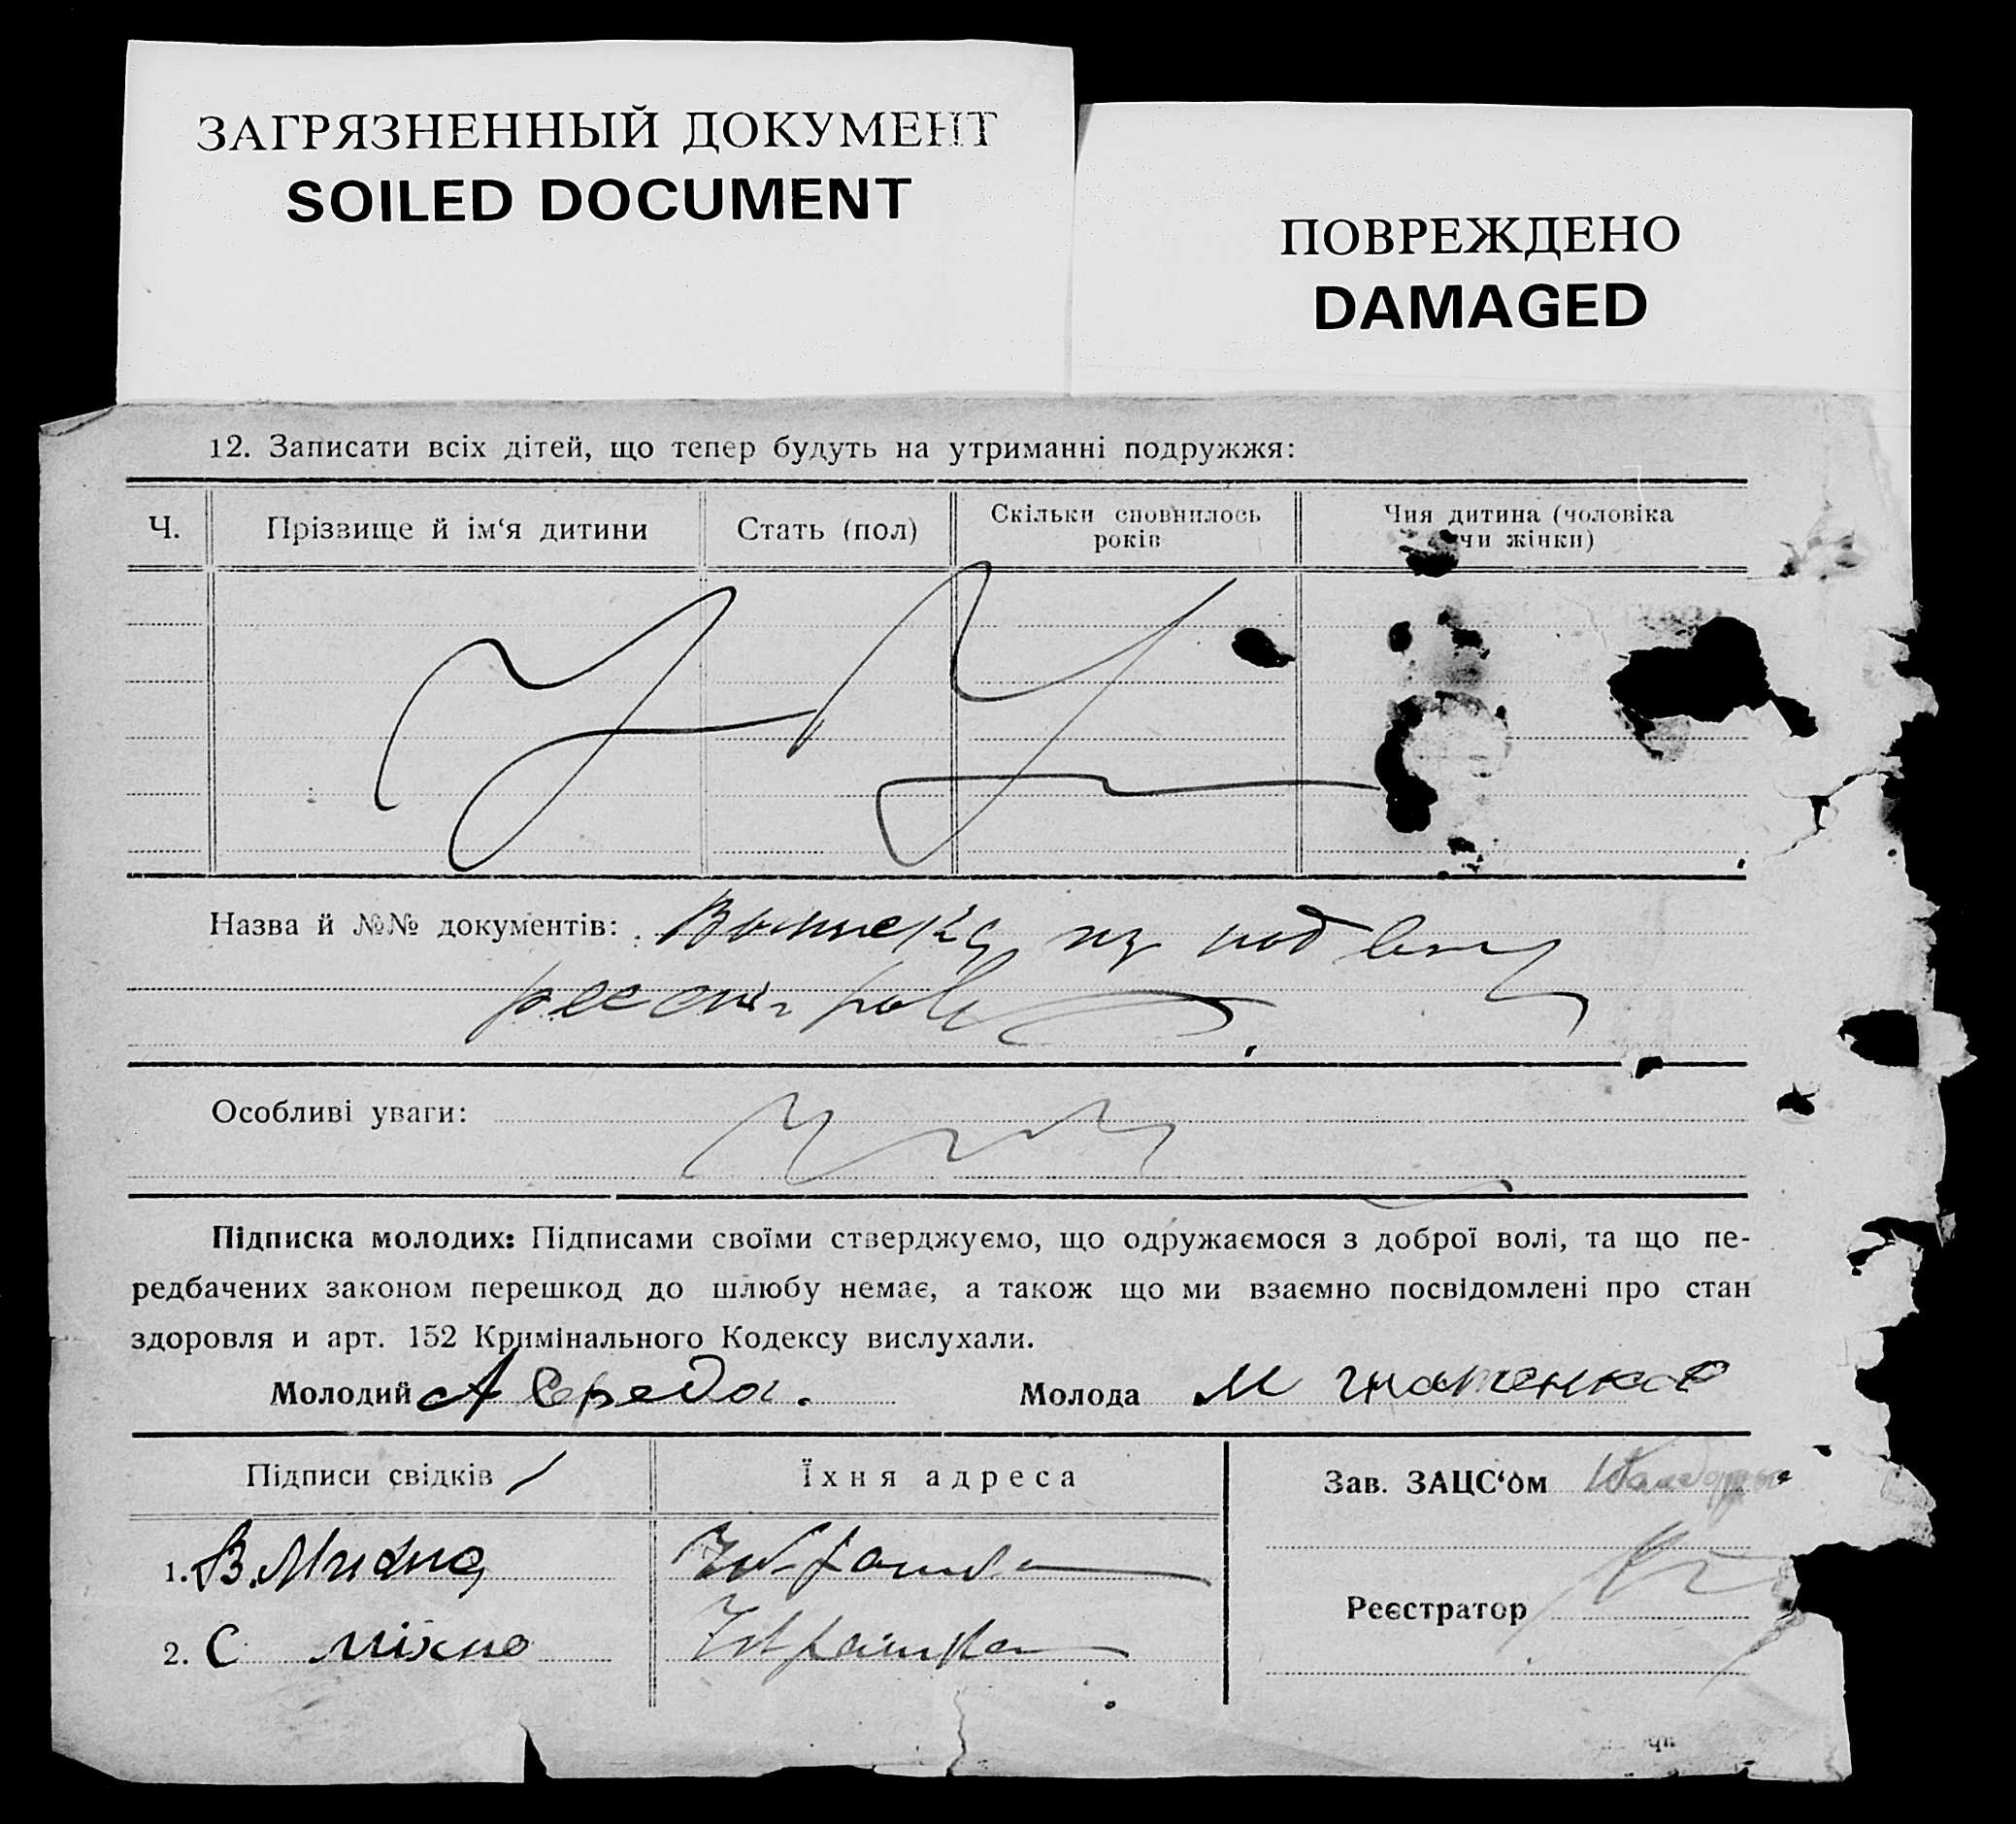 ЗАГРЯЗНЕННЫЙ ДОКУМЕНТ
SOILED DOCUMENT
ПОВРЕЖДЕНО
DAMAGED
12. Записати всіх дітей, що тепер будуть на утриманні подружжя:
Ч. Прізвище й ім‘я дитини Стать (пол) Скільки сповнилось років Чия дитина (чоловіка чи жінки)
Назва й №№ документів: Выписка из
Особливі уваги:
Підписка молодих: Підписами своїми стверджуємо, що одружаємося з доброї волі, та що пе-
редбачених законом перешкод до шлюбу немає, а також що ми взаємно посвідомлені про стан
здоровля и арт. 152 Кримінального Кодексу вислухали.
Молодий А Середа. Молода М Гнатенко
Підписи свідків Їхня адреса Зав. ЗАЦС‘ом
1. В.
Реєстратор
2. С міхно